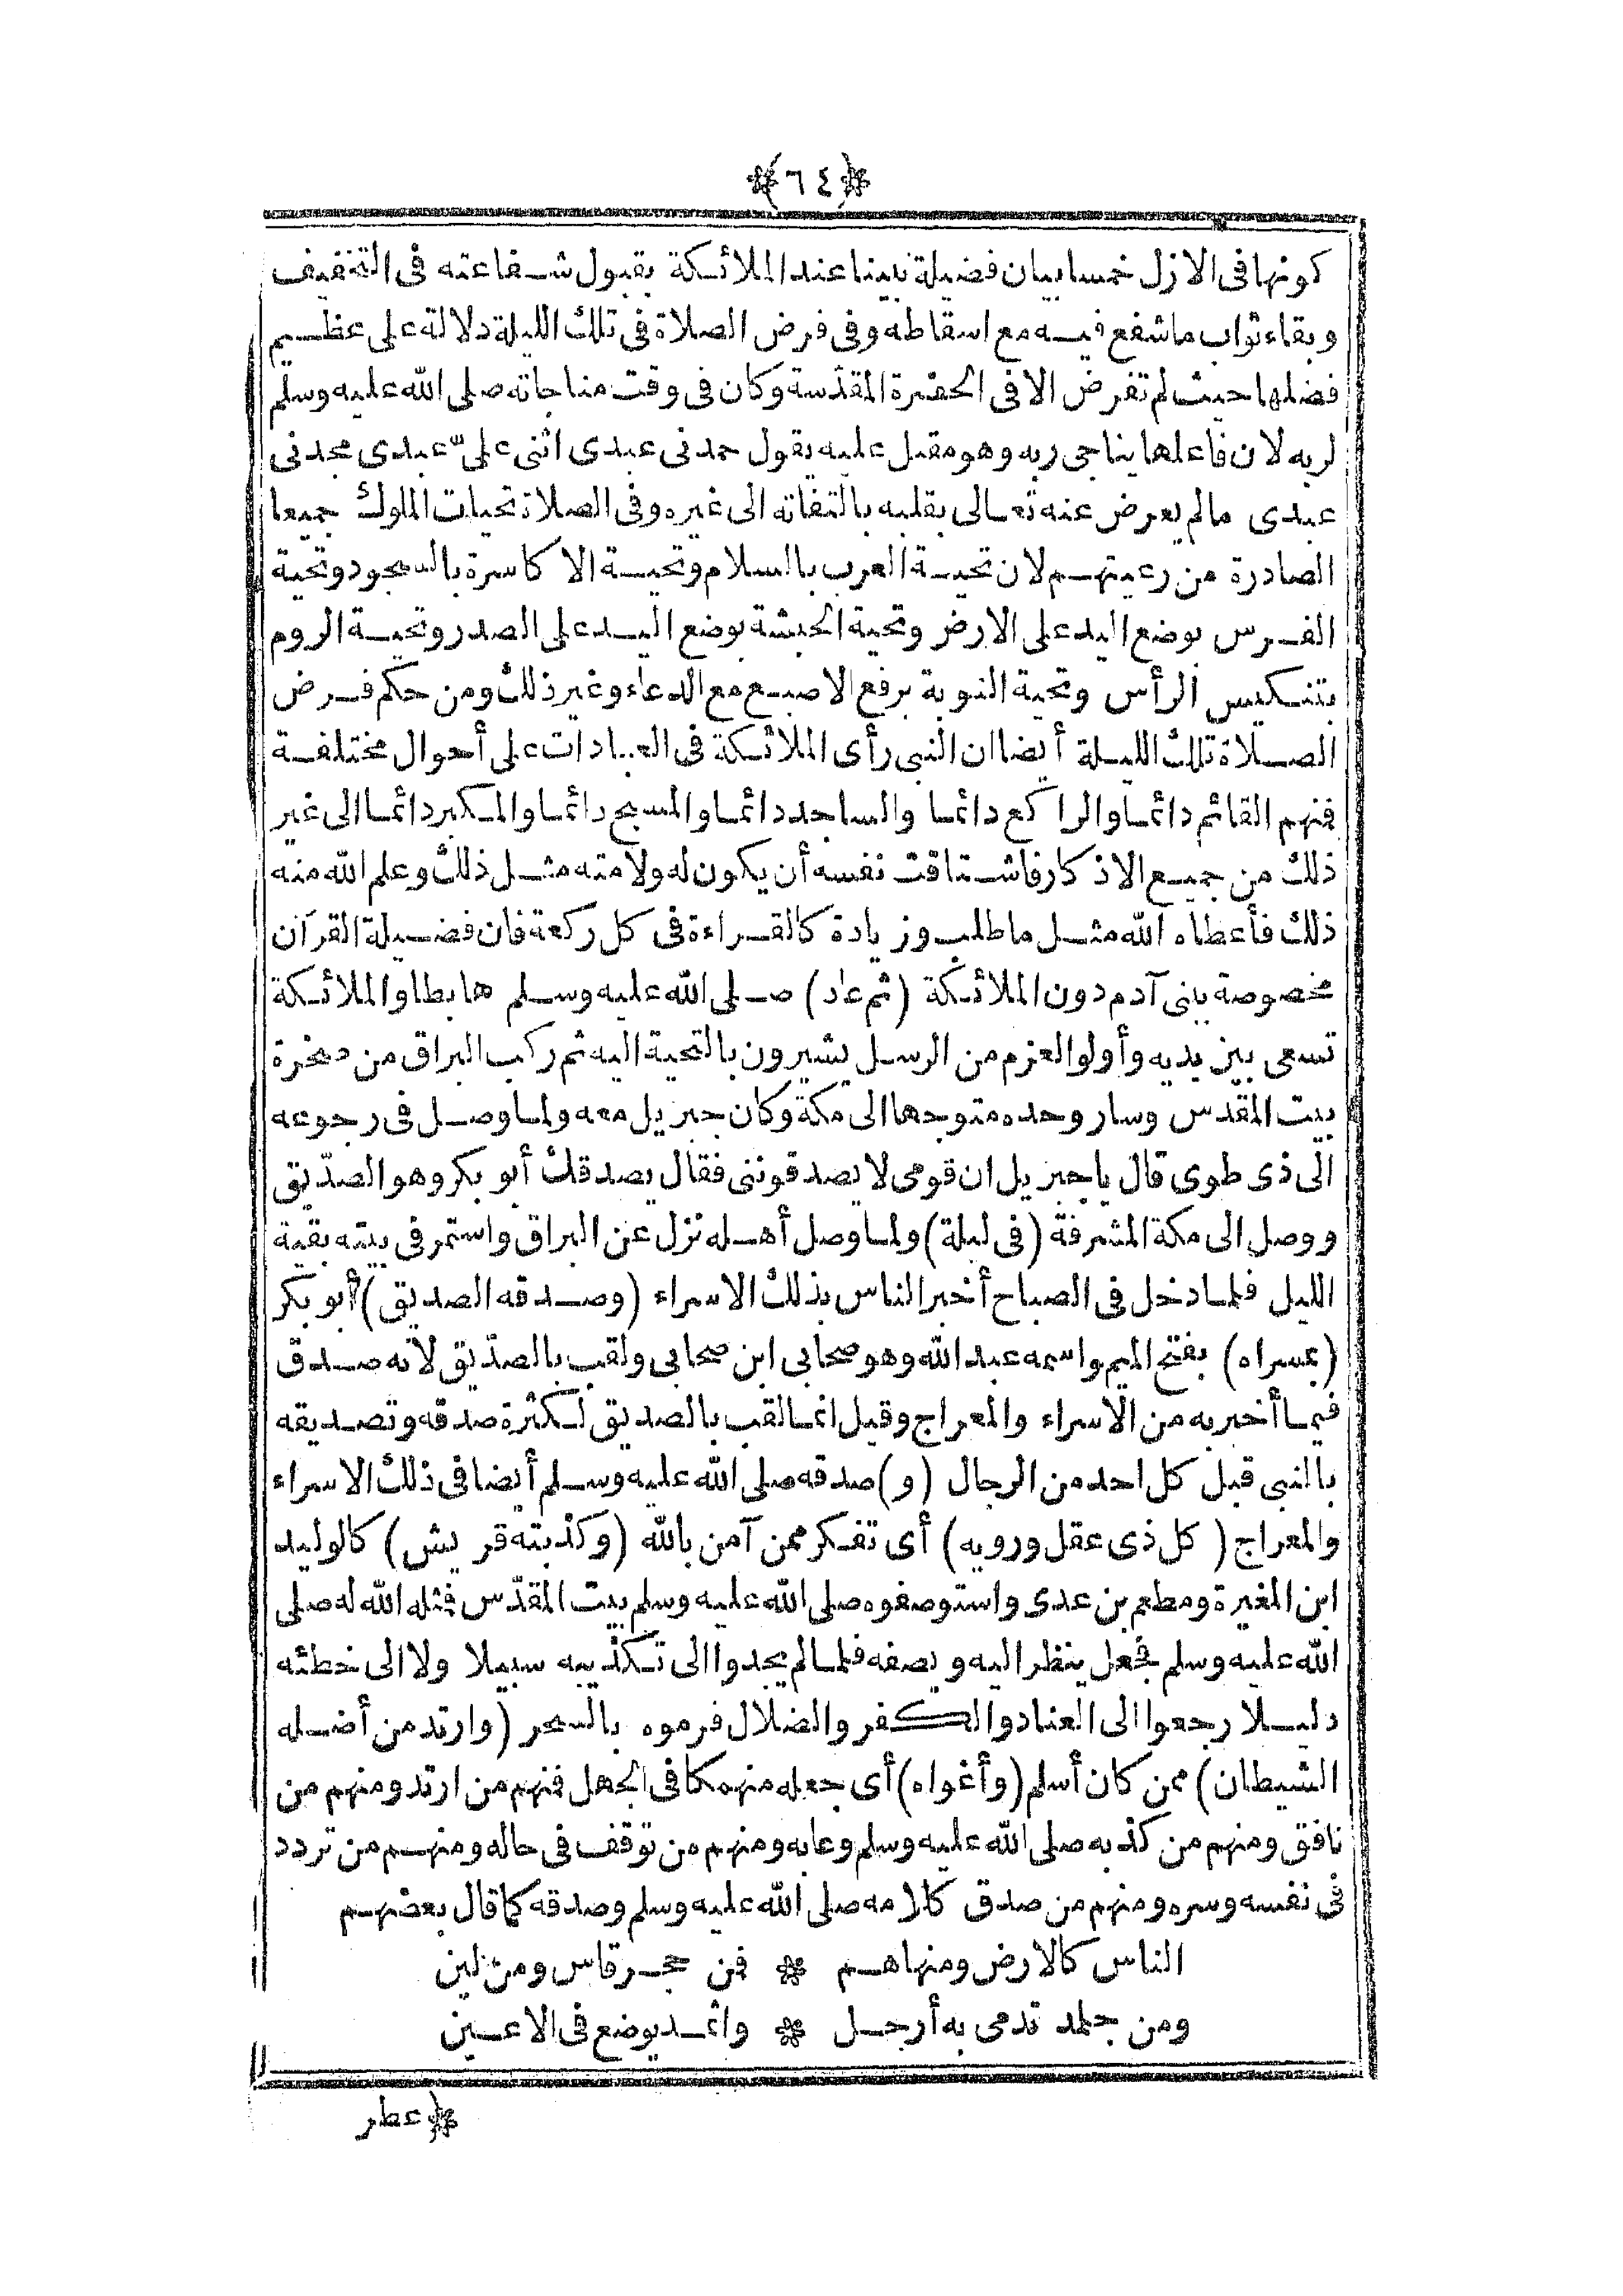 ﴿٦٤﴾
كونها فى الازل خمسا بيان فضيلة نبينا عند الملائكة بقبول شفاعته فى التخفيف
وبقاء ثواب ماشفع فيه مع اسقاطه وفى فرض الصلاة فى تلك الليلة دلالة على عظيم
فضلها حيث لم تفرض الا فى الحضرة المقدّسة وكان فى وقت مناجاته صلى الله عليه وسلم
لربه لان فاعلها يناجى ربه وهو مقبل عليه يقول حمدنى عبدى اثنى علىّ عبدى مجدنى
عبدى مالم يعرض عنه تعالى بقلبه بالتفاته الى غيره وفى الصلاة تحيات الملوك جميعا
الصادرة من رعيتهم لان تحية العرب بالسلام وتحية الاكاسرة بالسجود وتحية
الفرس بوضع اليد على الارض وتحية الحبشة بوضع اليد على الصدر وتحية الروم
بتنكيس الرأس وتحية النوبة برفع الاصبع مع الدعاء وغير ذلك ومن حكم فرض
الصلاة تلك الليلة أيضا ان النبى رأى الملائكة فى العبادات على أحوال مختلفة
فمنهم القائم دائما والراكع دائما والساجد دائما والمسبح دائما والمكبر دائما الى غير
ذلك من جميع الاذكار فاشتاقت نفسه أن يكون له ولامته مثل ذلك وعلم الله منه
ذلك فأعطاه الله مثل ما طلب وزيادة كالقراءة فى كل ركعة فان فضيلة القرآن
مخصوصة ببنى آدم دون الملائكة (ثم عاد) صلى الله عليه وسلم هابطا والملائكة
تسعى بين يديه وأولو العزم من الرسل يشيرون بالتحية اليه ثم ركب البراق من صخرة
بيت المقدس وسار وحده متوجها الى مكة وكان جبريل معه ولما وصل فى رجوعه
الى ذى طوى قال يا جبريل ان قومى لا يصدقوننى فقال يصدقك أبو بكر وهو الصدّيق
ووصل الى مكة المشرفة (فى ليلة) ولما وصل أهله نزل عن البراق واستمر فى بيته بقية
الليل فلما دخل فى الصباح أخبر الناس بذلك الاسراء (وصدقه الصديق) أبو بكر
(بمسراه) بفتح الميم واسمه عبد الله وهو صحابى ابن صحابى ولقب بالصدّيق لانه صدق
فيما أخبر به من الاسراء والمعراج وقيل انما لقب بالصديق لكثرة صدقه وتصديقه
بالنبى قبل كل احد من الرجال (و) صدقه صلى الله عليه وسلم أيضا فى ذلك الاسراء
والمعراج (كل ذى عقل ورويه) أى تفكر ممن آمن بالله (وكذبته قريش) كالوليد
ابن المغيرة ومطعم بن عدى واستوصفوه صلى الله عليه وسلم بيت المقدّس فمثله الله له صلى
الله عليه وسلم فجعل ينظر اليه ويصفه فلما لم يجدوا الى تكذيبه سبيلا ولا الى خطئه
دليلا رجعوا الى العناد والكفر والضلال فرموه بالسحر (وارتد من أضله
الشيطان) ممن كان أسلم (وأغواه) أى جعله منهمكا فى الجهل فمنهم من ارتد ومنهم من
نافق ومنهم من كذبه صلى الله عليه وسلم وعابه ومنهم من توقف فى حاله ومنهم من تردد
فى نفسه وسره ومنهم من صدق كلامه صلى الله عليه وسلم وصدقه كما قال بعضهم
الناس كالارض ومنها هم * فمن حجر قاس ومن لين
ومن جلمد تدمى به أرجل * واثمد يوضع فى الاعين
﴿عطر